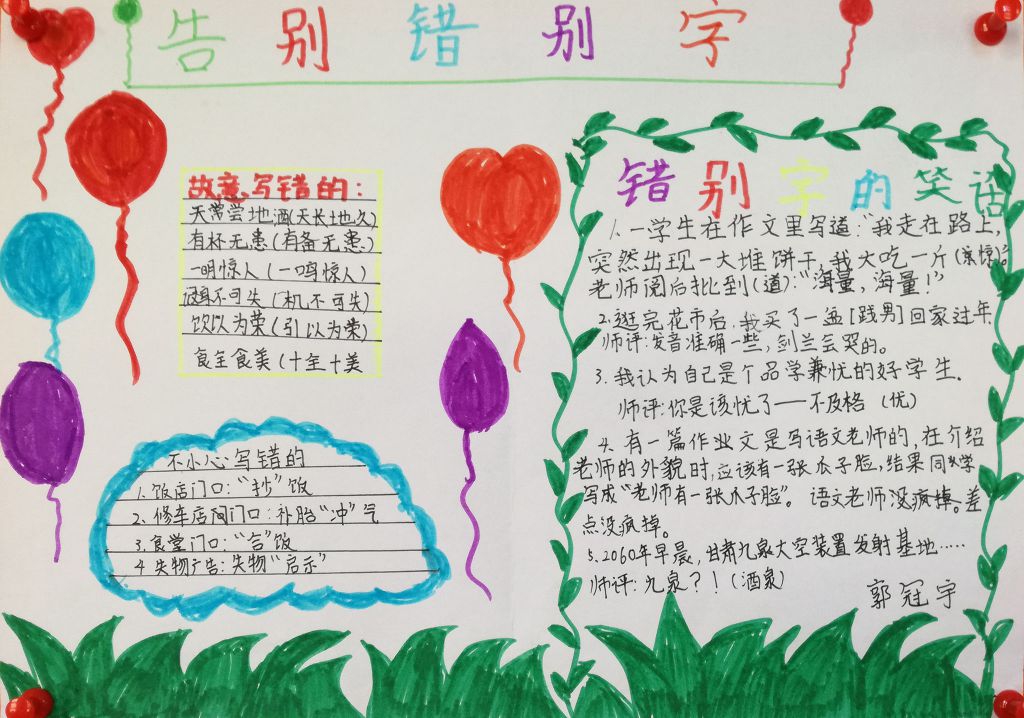 告别错别字
故意写错的：
天常尝地酒(天长地久)
有杯无患(有备无患)
一明惊人(一鸣惊人)
不可失(机不可失)
饮以为荣(引以为荣)
食全食美(十全十美
不小心写错的
1.饭店门口：“抄”饭
2、修车店间门口：补胎“冲”气
3.食堂门口：“合”饭
4.失物广告：失物“启示”
错别字的笑话
1.一学生在作文里写道：“我走在路上，
突然出现一大堆饼干，我大吃一斤(惊)”。
老师阅后批到(道)：“海量，海量！”
2.逛完花市后，我买了一盆[践男]回家过年.
师评：发音准确一些，剑兰会哭的。
3.我认为自己是个品学兼忧的好学生．
师评：你是该忧了——不及格 (优)
4.有一篇作业文是写语文老师的，在介绍
老师的外貌时，应该有一张瓜子脸，结果同学
写成“老师有一张爪子脸”。语文老师没疯掉。差
点没疯掉。
5.2060年早晨，甘肃九泉太空装置发射基地……
师评：九泉？！(酒泉)
郭冠宇